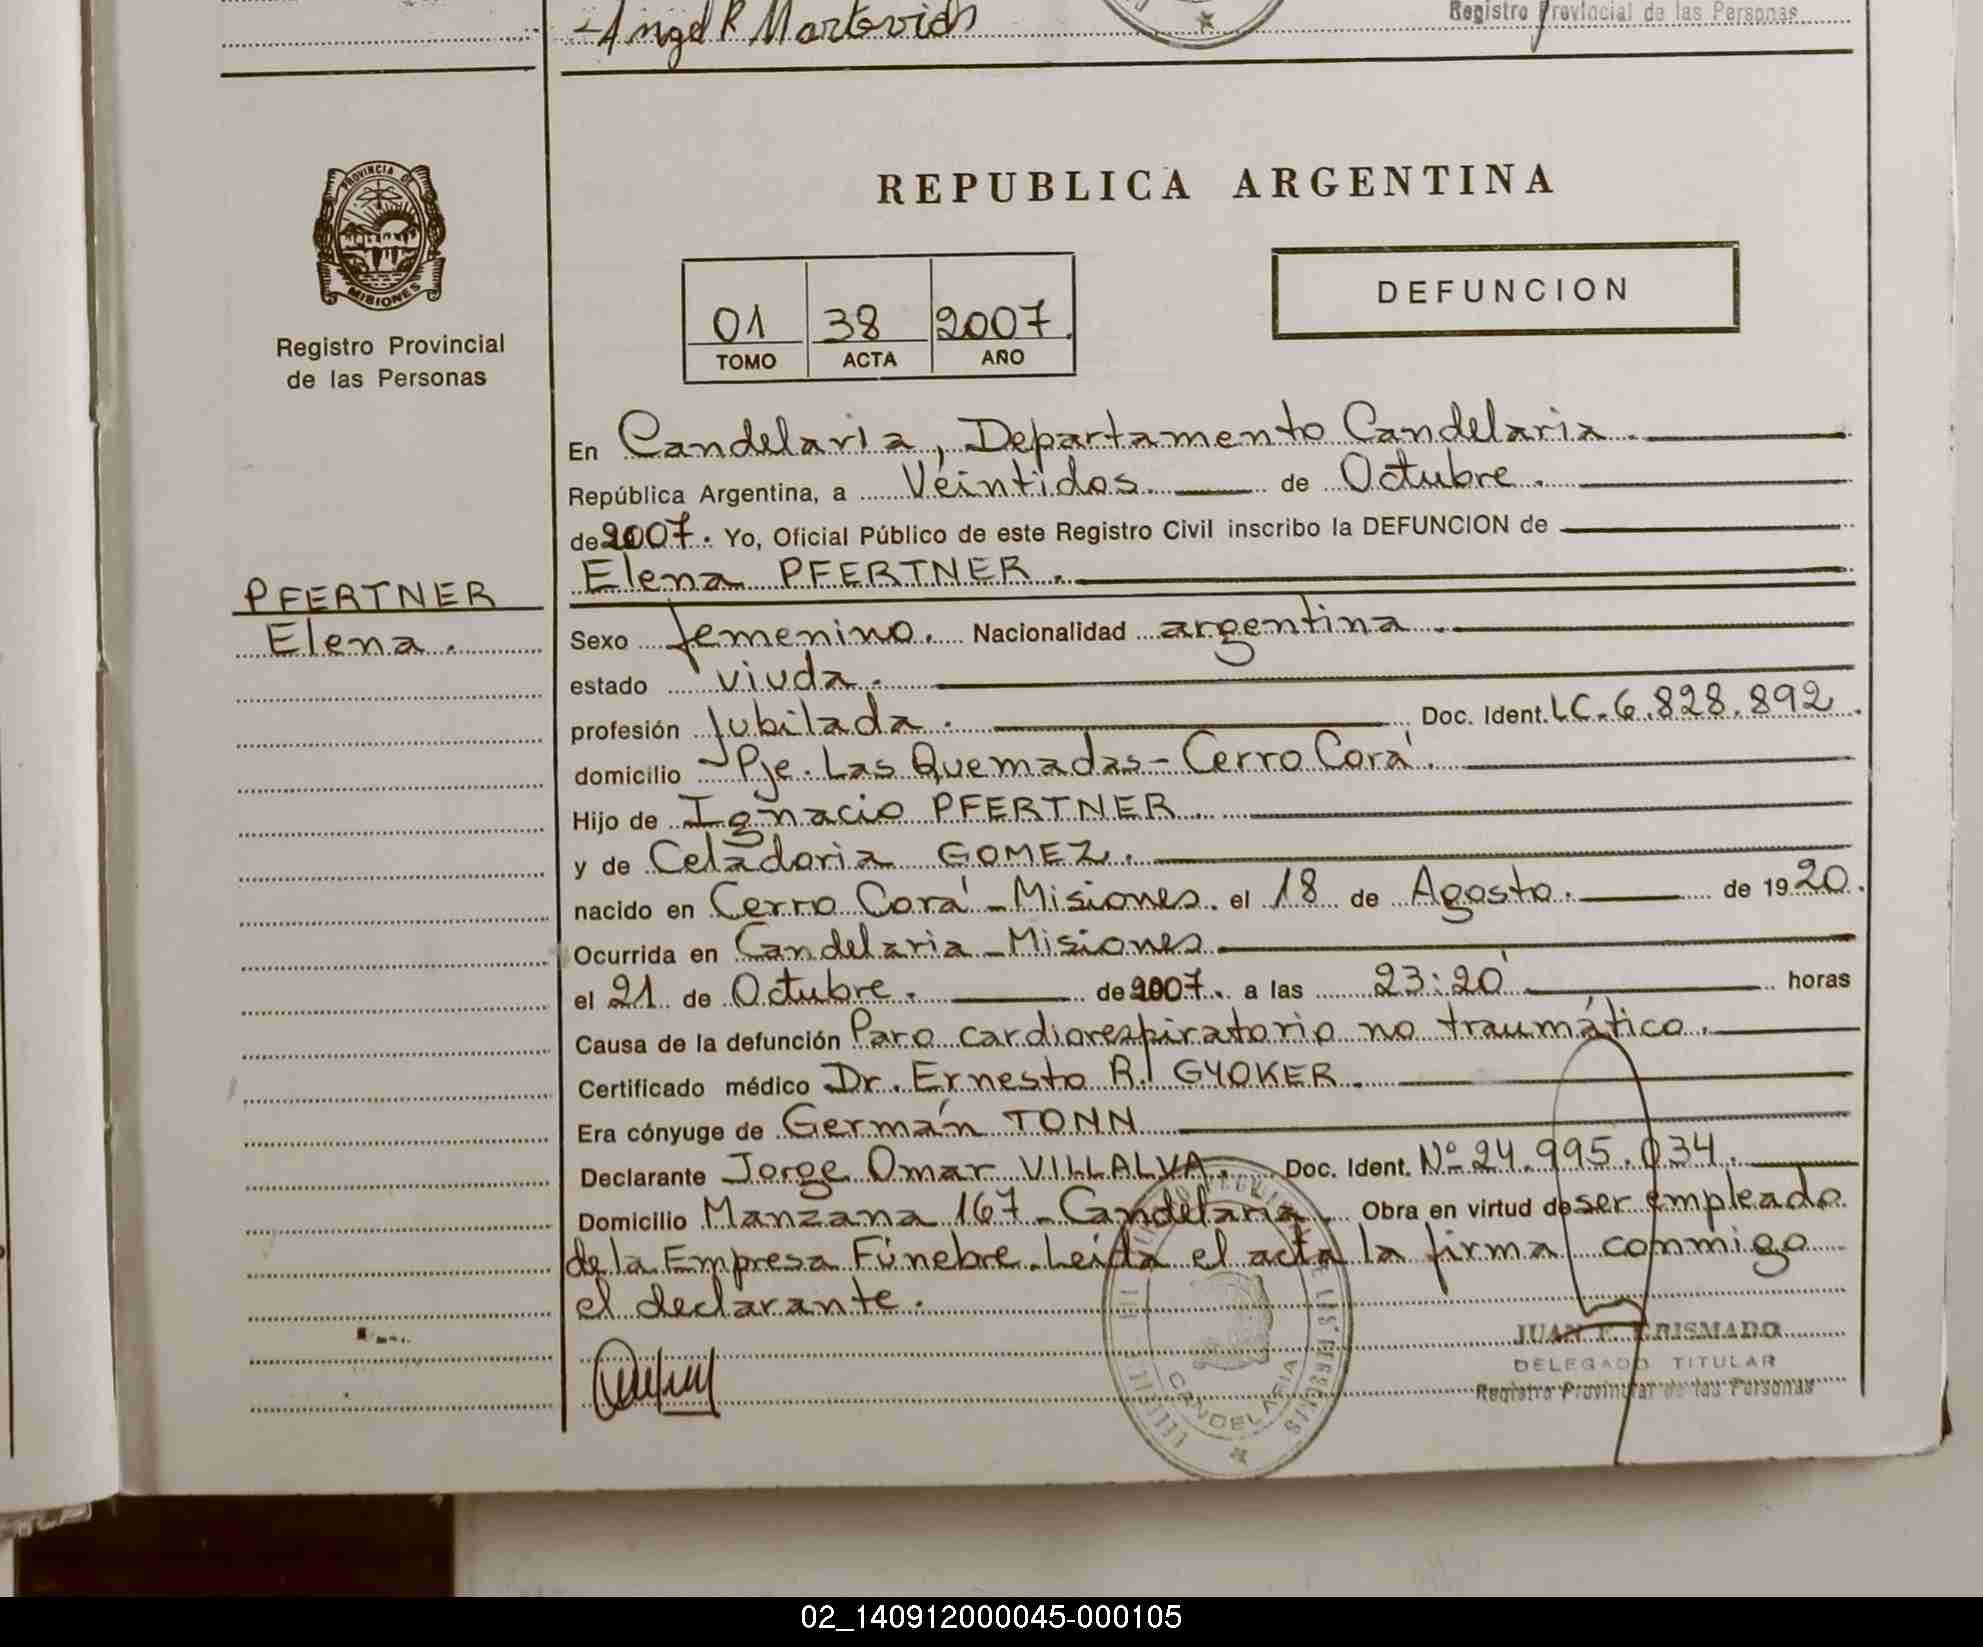 Angel R Martovich
Registro Provincial de las Personas
PROVINCIA DE
MISIONES
Registro Provincial
de las Personas
REPUBLICA ARGENTINA
DEFUNCION
01 38 2007.
TOMO ACTA AÑO
En Candelaria, Departamento Candelaria.
República Argentina, a Veintidos de Octubre.
de 2007. Yo, Oficial Público de este Registro Civil inscribo la DEFUNCION de
Elena PFERTNER.
PFERTNER
Elena.
Sexo femenino. Nacionalidad argentina.
estado viuda.
profesión Jubilada. Doc. Ident. LC. 6.828.892.
domicilio Pje. Las Quemadas - Cerro Corá.
Hijo de Ignacio PFERTNER
y de Celadoria GOMEZ.
nacido en Cerro Corá - Misiones. el 18 de Agosto. de 1920.
Ocurrida en Candelaria - Misiones
el 21 de Octubre. de 2007. a las 23:20' horas
Causa de la defunción Paro cardiorespiratorio no traumático.
Certificado médico Dr. Ernesto R. GYOKER.
Era cónyuge de Germán TONN
Declarante Jorge Omar VILLALVA. Doc. Ident. Nº 24.995.034.
Domicilio Manzana 167 - Candelaria. Obra en virtud de ser empleado
de la Empresa Fúnebre. Leída el acta la firma conmigo
el declarante.
JUAN F. CRISMADO
DELEGADO TITULAR
Registro Provincial de las Personas
CANDELARIA
02_140912000045-000105